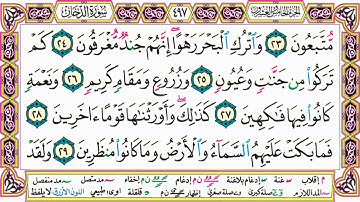 سُورَةُ الدُّخَان ٤٩٧ الجزء الخامس والعشرون
مُّتَّبَعُونَ ٢٣ وَاتْرُكِ الْبَحْرَ رَهْوًا ۖ إِنَّهُمْ جُندٌ مُّغْرَقُونَ ٢٤ كَمْ
تَرَكُوا مِن جَنَّٰتٍ وَعُيُونٍ ٢٥ وَزُرُوعٍ وَمَقَامٍ كَرِيمٍ ٢٦ وَنَعْمَةٍ
كَانُوا فِيهَا فَٰكِهِينَ ٢٧ كَذَٰلِكَ ۖ وَأَوْرَثْنَٰهَا قَوْمًا ءَاخَرِينَ ٢٨
فَمَا بَكَتْ عَلَيْهِمُ السَّمَآءُ وَالْأَرْضُ وَمَا كَانُوا مُنظَرِينَ ٢٩ وَلَقَدْ